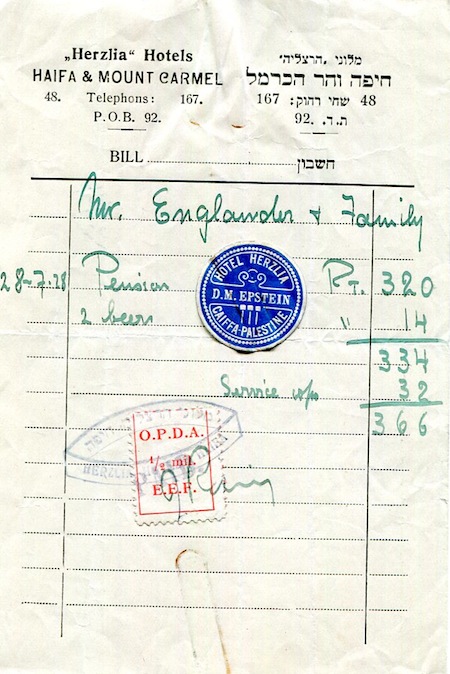 „Herzlia“ Hotels
HAIFA & MOUNT CARMEL
48. Telephons: 167.
P.O.B. 92.
מלוני „הרצליה“
חיפה והר הכרמל
48 שחי רחוק: 167
ת.ד. 92.
BILL חשבון
Mr. Englander & Family
28-7-28 Pension Pt. 320
2 beers " 14
334
Service 32
366
HOTEL HERZLIA
D.M. EPSTEIN
CAIFFA-PALESTINE
O.P.D.A.
½ mil.
E.E.F.